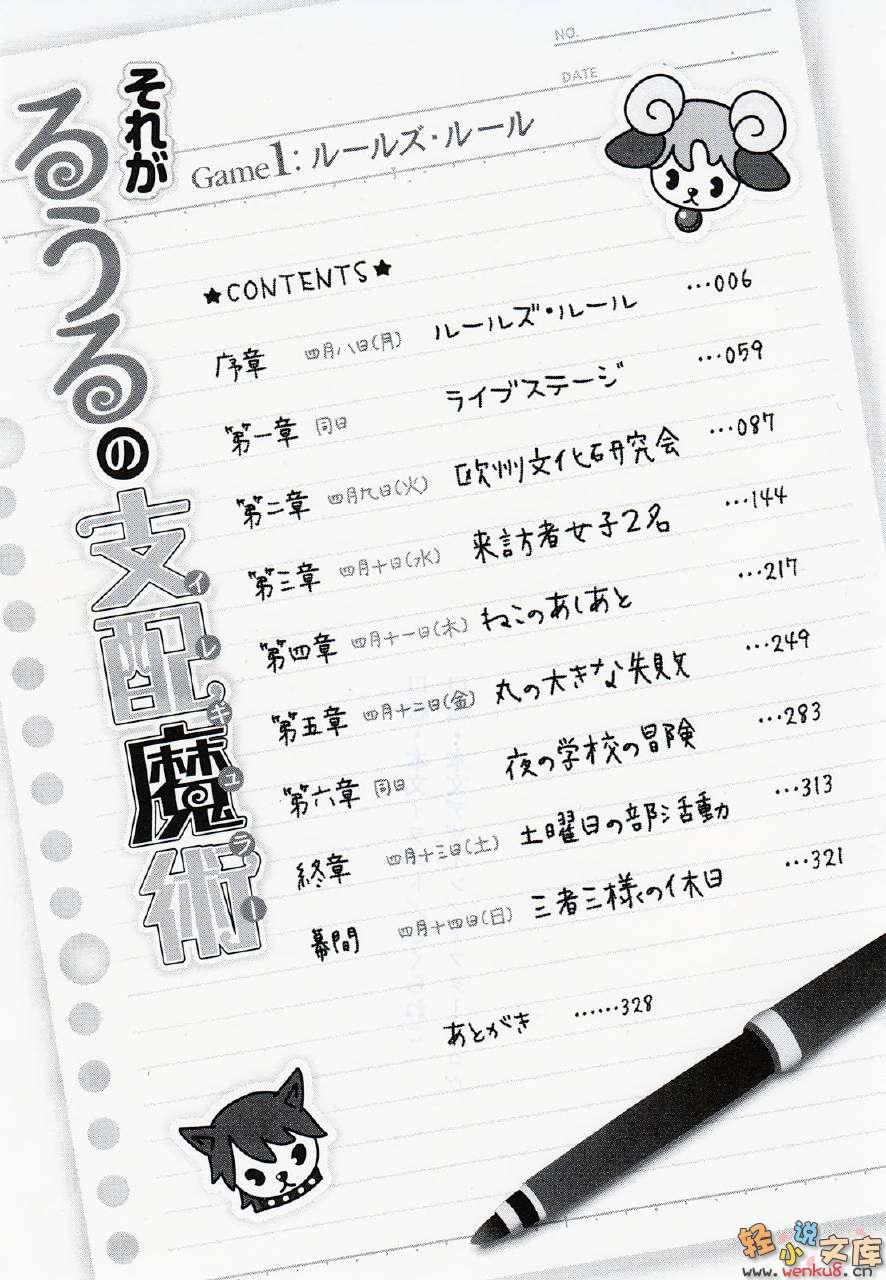 NO.
DATE
それが
るうるの
支配魔術
イレギュラー
Game1:ルールズ・ルール
★CONTENTS★
序章 四月八日(月) ルールズ・ルール …006
第一章 同日 ライブステージ …059
第二章 四月九日(火) 欧州文化研究会 …087
第三章 四月十日(水) 来訪者女子2名 …144
第四章 四月十一日(木) ねこのあしあと …217
第五章 四月十二日(金) 丸の大きな失敗 …249
第六章 同日 夜の学校の冒険 …283
終章 四月十三日(土) 土曜日の部活動 …313
幕間 四月十四日(日) 三者三様の休日 …321
あとがき ……328
轻小说文库
www.wenku8.cn